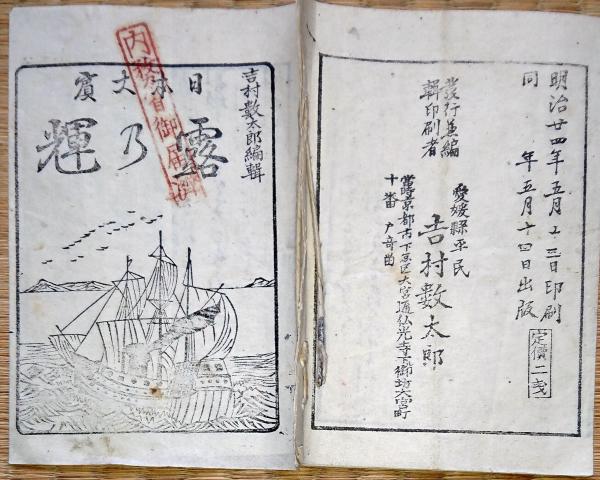 明治廿四年五月十三日印刷
同 年五月十四日出版
定價二戔
發行兼編
輯印刷者
愛媛縣平民
吉村數太郎
當時京都市下京区大宮通仏光寺下御坊大宮町
十番戸寄留
吉村數太郎編輯
日本大賓
露乃輝
内務省御届済